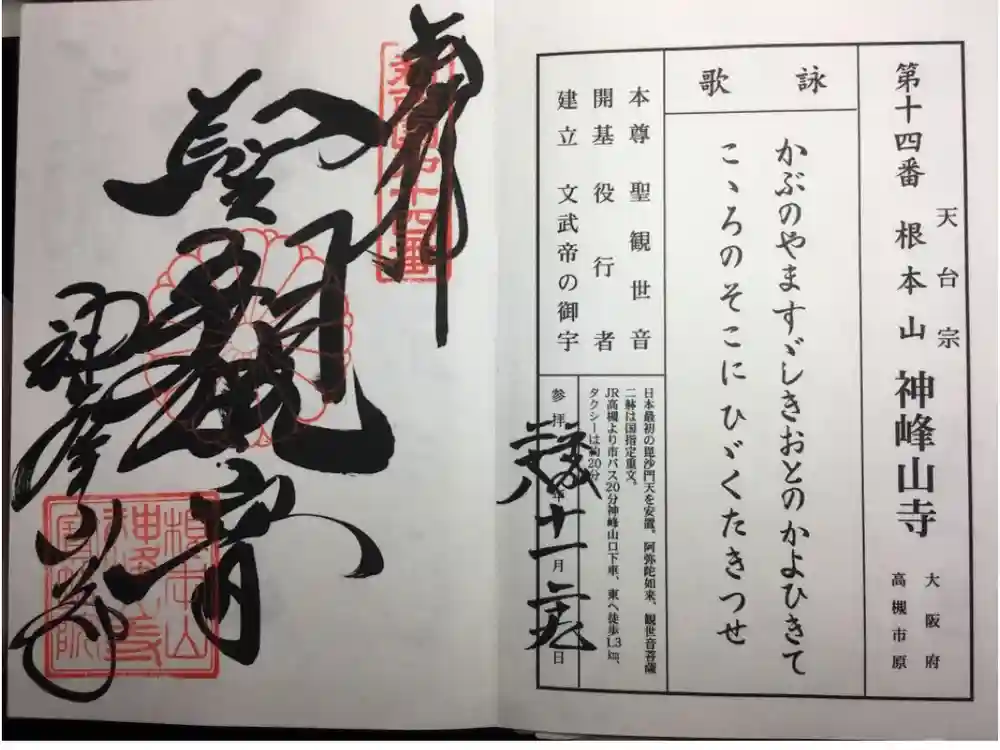 第十四番 根本山 神峰山寺
天台宗
大阪府
高槻市原
詠歌
かぶのやますゞしきおとのかよひきて
こゝろのそこにひゞくたきつせ
本尊 聖観世音
開基 役行者
建立 文武帝の御宇
日本最初の毘沙門天を安置。阿弥陀如来、観世音菩薩
二躰は国指定重文。
JR高槻より市バス20分神峰山口下車、東へ徒歩1.3㎞、
タクシーは約20分
参拝 年十一月 日
奉拝
聖観音
神峯山寺